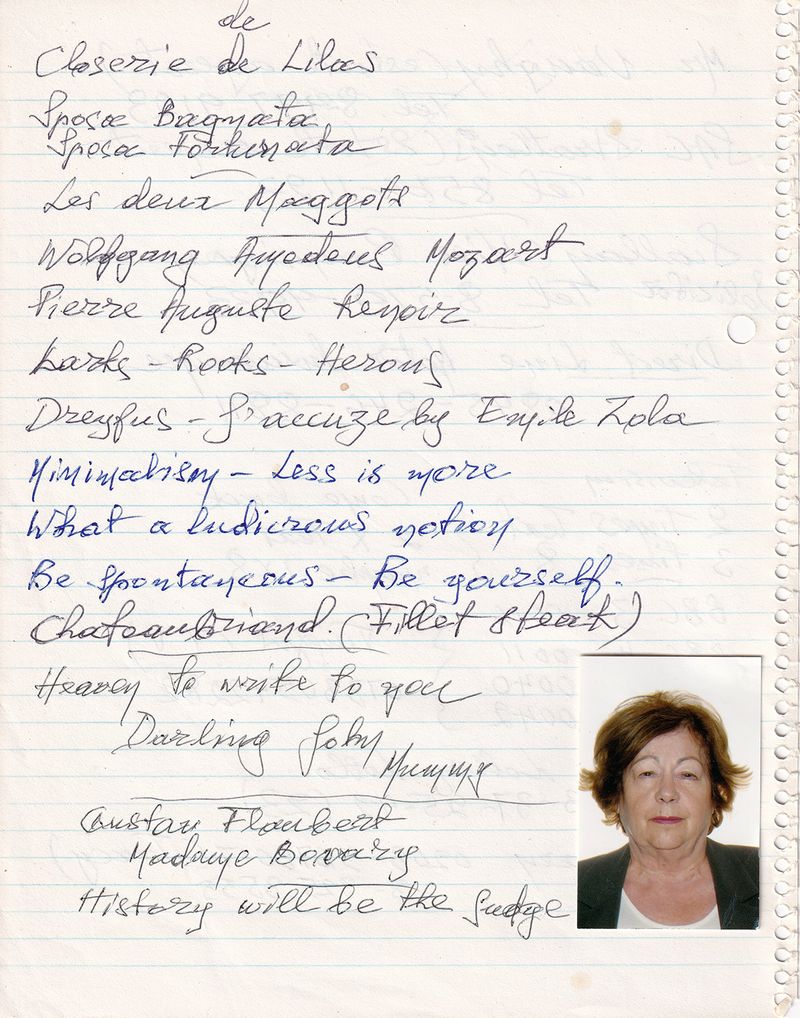 de
Closerie de Lilas
Sposa Bagnata
Sposa Fortunata
Les deux Maggots
Wolfgang Amedeus Mozart
Pierre Auguste Renoir
Larks - Rooks - Herons
Dreyfus - J'accuze by Emile Zola
Minimalism - Less is more
What a ludicrous notion
Be spontaneous - Be yourself.
Chateaubriand. (Fillet steak)
Heaven to write to you
Darling John
Mummy
Gustav Flaubert
Madame Bovary
History will be the judge